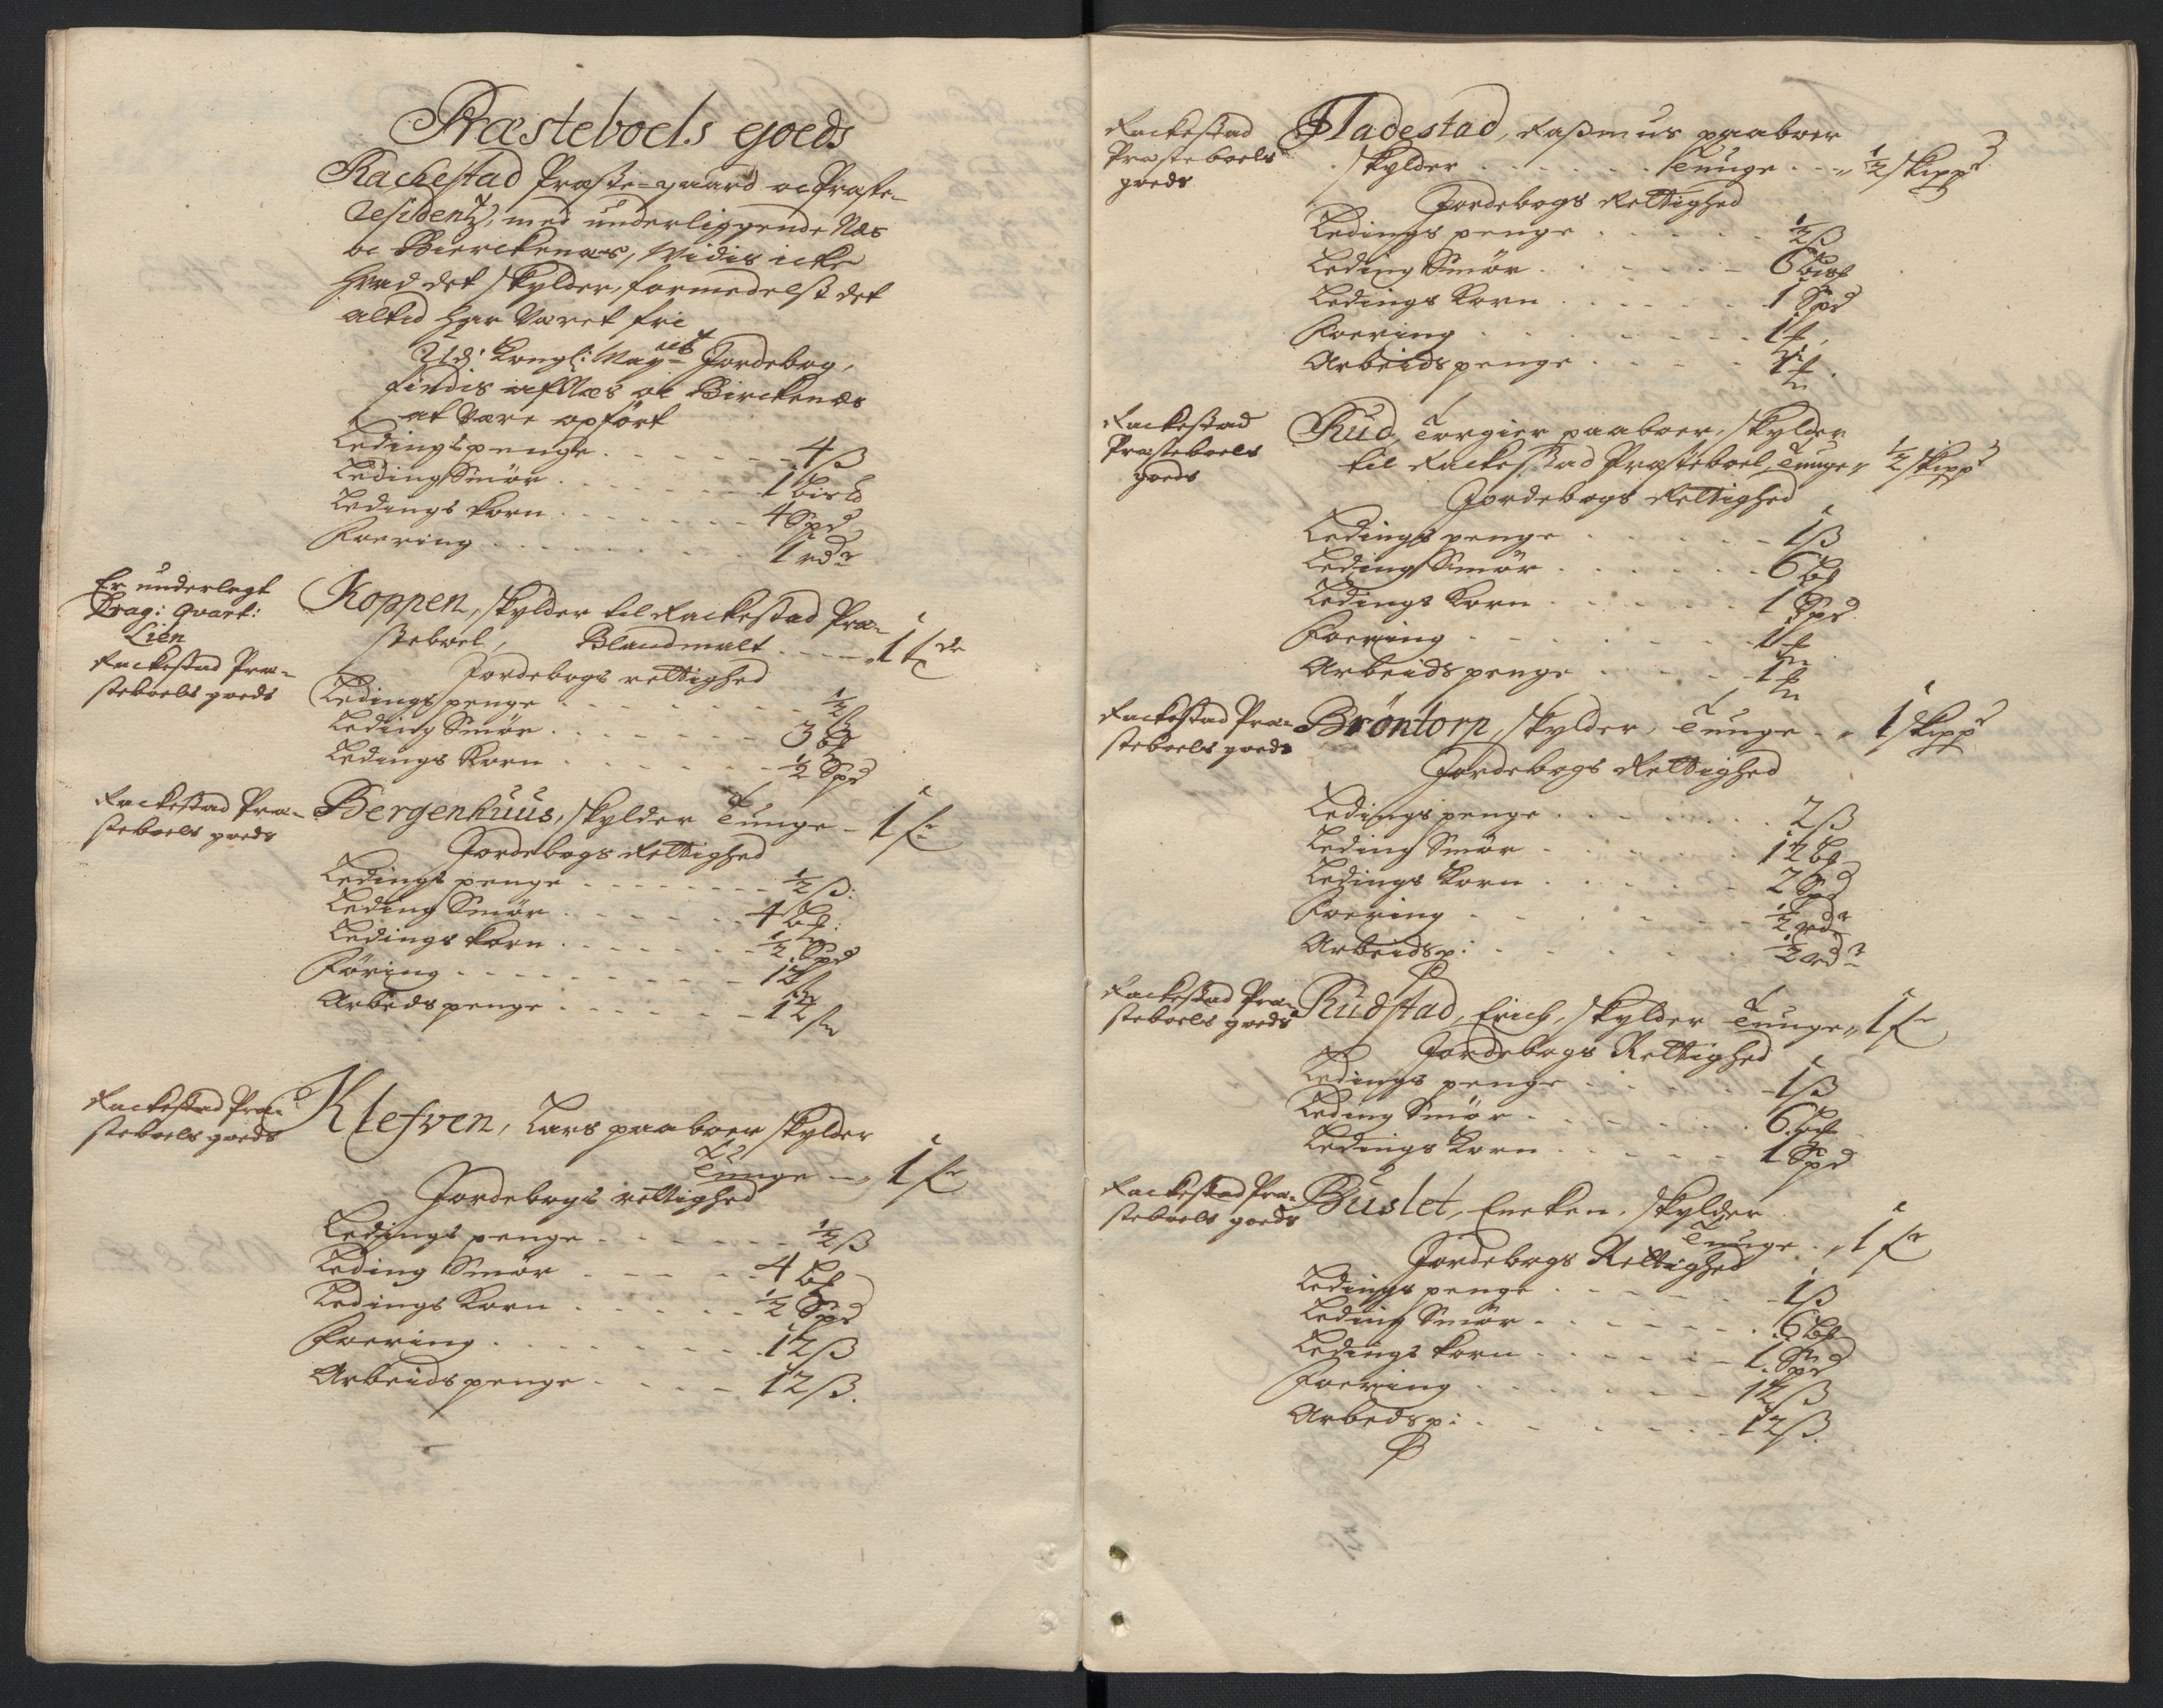 Præsteboels goeds
Rachestad Præste-gaard oc Præste-
residentz, med underliggende Næs
oc Bierckenæs, Widis icke
hvad det skylder, formedelst det
altid har Været fri
Udj Kongl: May:ts Jordebog,
findis af Næs oc Birckenæs
at Være opført
Ledings penge - - - 4 ß
Leding Smør - - - 1 bis℔
Ledings korn - - - 4 Spd
Foering - - - 1 rdr
Er underlagt
Drag: Qvart:
Lien
Rackestad Præ-
steboels goeds
Koppen, skylder til Rackestad Præ-
steboel, Blandmalt - - - 1
Jordebogs rettighed
Ledings penge - - - ½ ß
Leding Smør - - - 3
Ledings Korn - - - ½ Spd
Rackestad Præ-
steboels goeds
Bergenhuus, skylder Tunge - 1
Jordebogs Rettighed
Ledings penge - - - ½ ß:
Leding Smør - - - 4
Ledings korn - - - ½ Spd
Føring - - - 12 ß
Arbeds penge - - - 12 ß
Rackestad Præ-
steboels goeds
Klefven, Lars paaboer skylder
Tunge - 1
Jordebogs rettighed
Ledings penge - - - ½ ß
Leding Smør - - - 4
Ledings Korn - - - ½ Spd
Foering - - - 12 ß
Arbeids penge - - - 12 ß.
Rackestad
Præsteboels
goeds
Fladestad, Rasmus paaboer
skylder - - - Tunge - - ½ skippd
Jordebogs Rettighed
Ledings penge - - - ½ ß
Leding Smør - - - 6
Ledings Korn - - - 1 Spd
Foering - - - 1
Arbeids penge - - - 1
Rackestad
Præsteboels
goeds
Rud, Torgier paaboer, skylder
til Rackestad Præsteboel Tunge ½ skippd
Jordebogs Rettighed
Ledings penge - - - 1 ß
Leding Smør - - - 6
Ledings Korn - - - 1 Spd
Foering - - - 1
Arbeids penge - - - 1
Rackestad Præ-
steboels goeds
Brøntorp, skylder, Tunge - 1 skippd
Jordebogs Rettighed
Ledings penge - - - 2 ß
Leding Smør - - - 12
Ledings Korn - - - 2 Spd
Foering - - - ½ rdr
Arbeidsp: - - - ½ rdr
Rackestad Præ-
steboels goeds
Rudstad, Erich, skylder Tunge 1
Jordebogs Rettighed
Ledings penge - - - 1 ß
Leding Smør - - - 6
Ledings Korn - - - 1 Spd
Rackestad Præ-
steboels goeds
Buslet, Encken, skylder
Tunge - 1
Jordebogs Rettighed
Ledings penge - - - 1 ß
Leding Smør - - - 6
Ledings korn - - - 1 Spd
Foering - - - 12 ß
Arbedsp: - - - 12 ß.